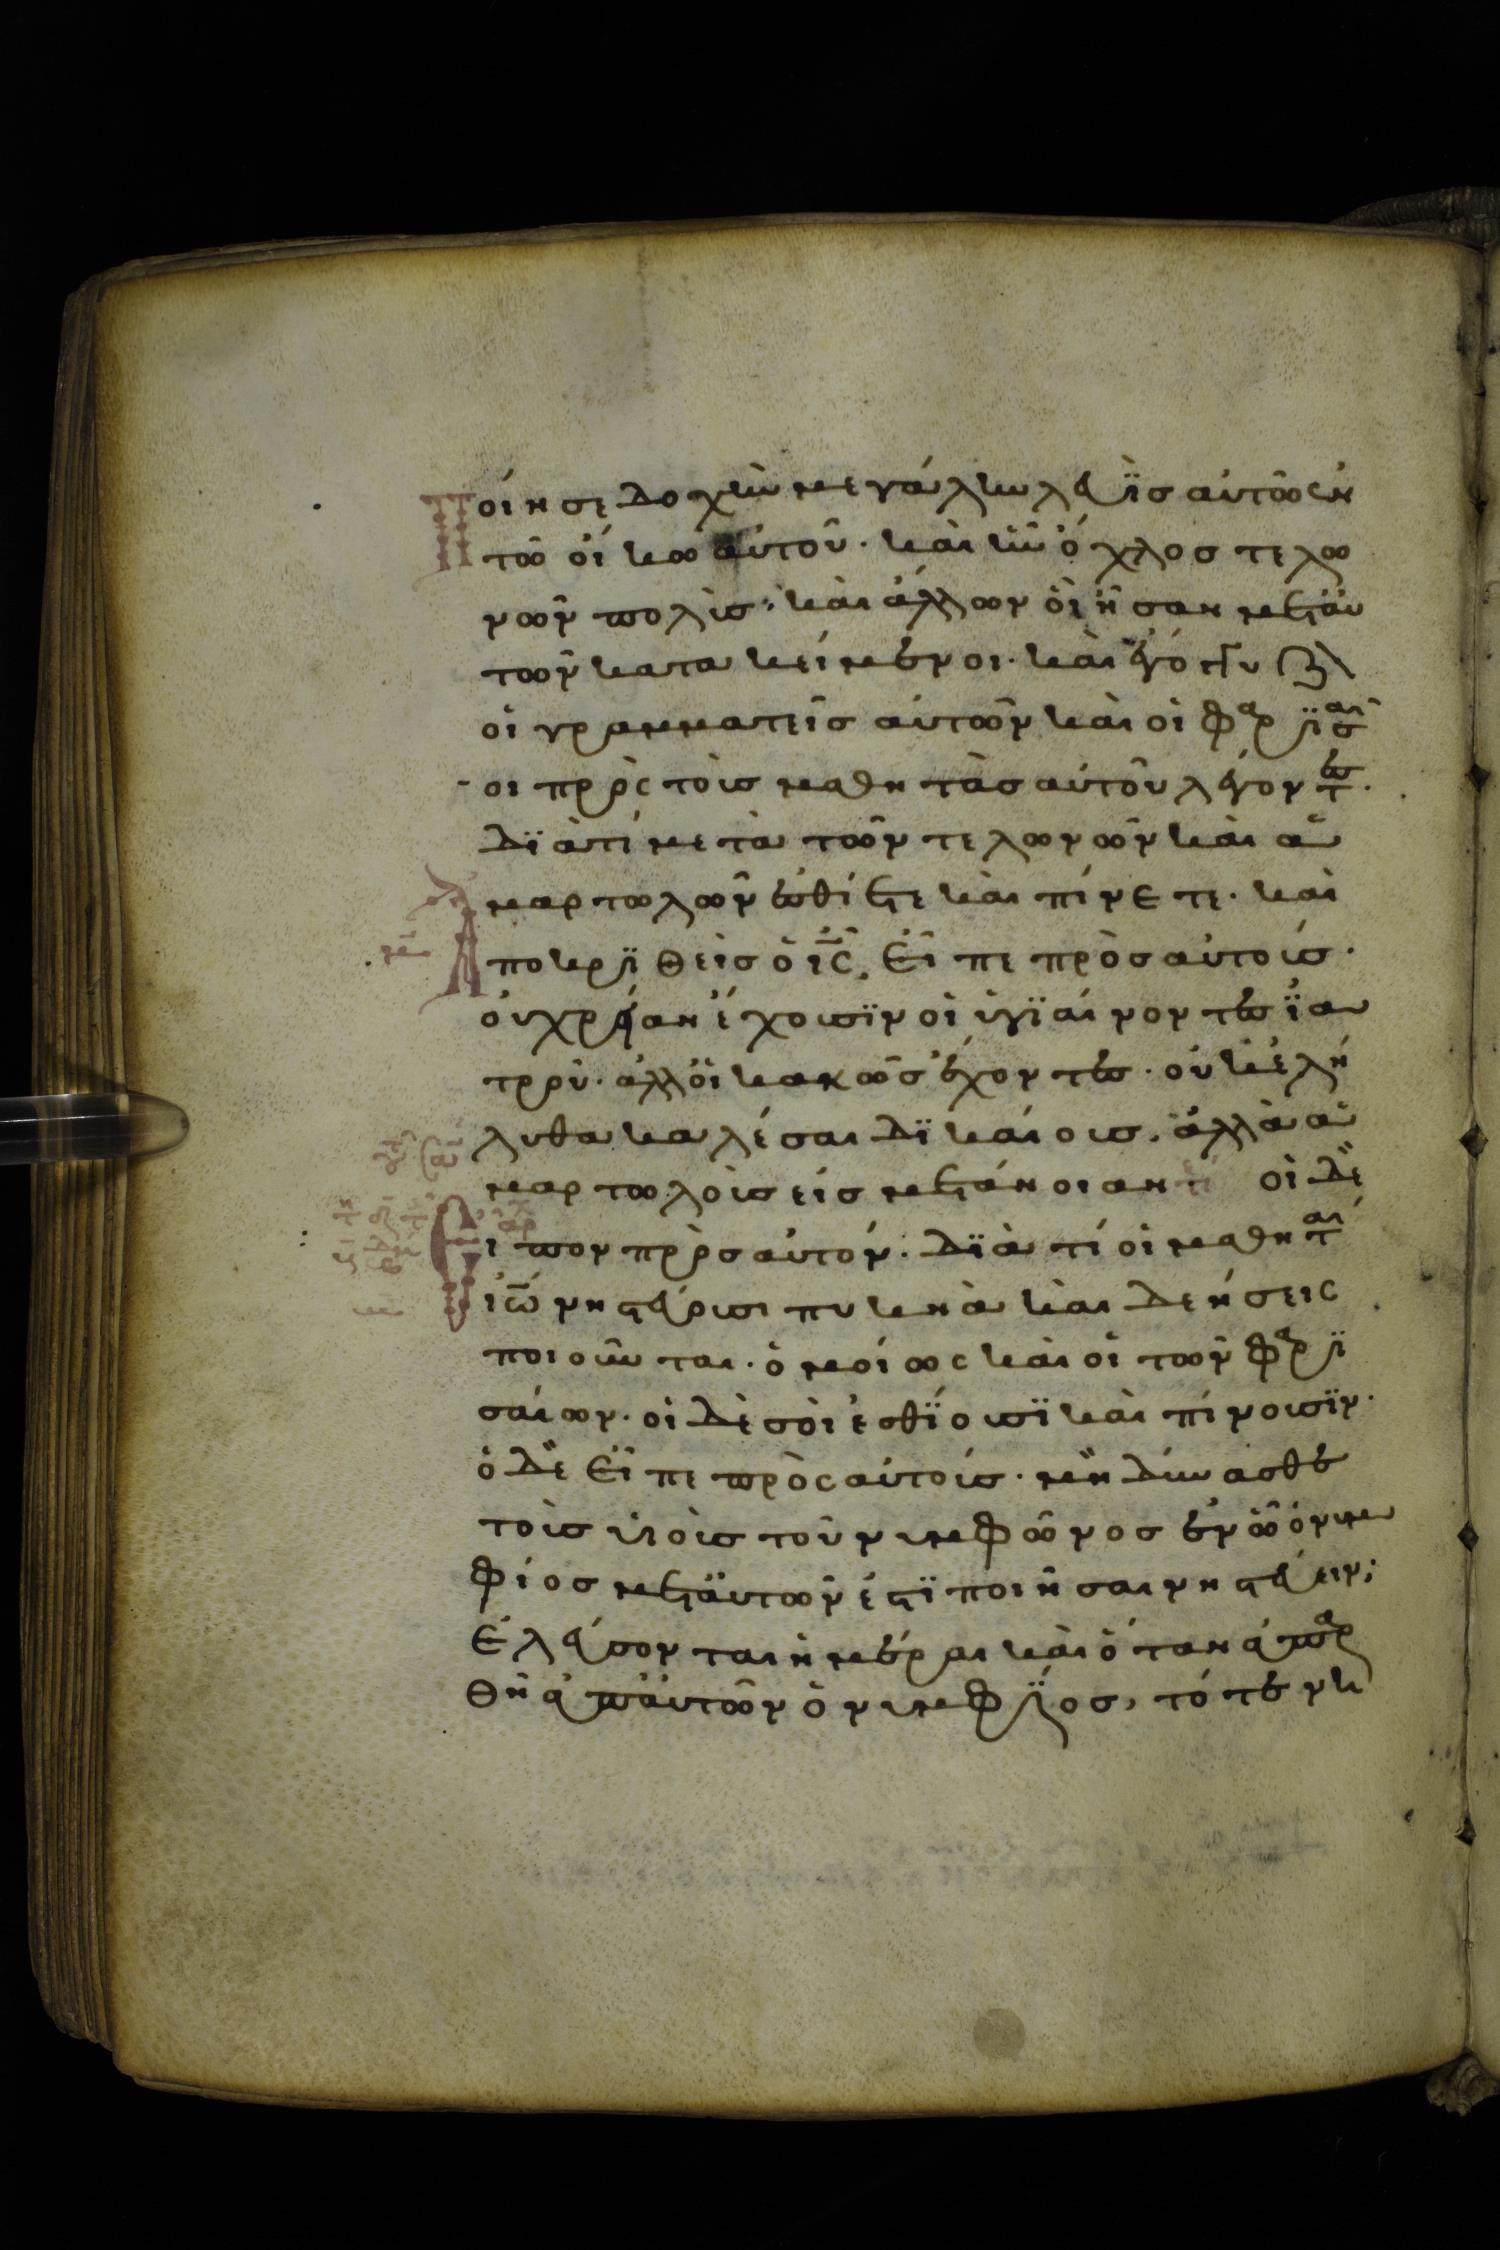 Ποίησε δοχὴν μεγάλην λευῒς αὐτῶ ἐν
τῶ οἴκω αὐτοῦ· καὶ ἦν ὄχλος τελω
νῶν πολὺς· καὶ ἄλλων οἳ ἦσαν μεταὐ
τῶν κατακείμενοι· καὶ ἐγόγγυζον
οἱ γραμματεῖς αὐτῶν καὶ οἱ φαρισαῖ
οι πρὸς τοὺς μαθητὰς αὐτοῦ λέγοντες·
Διὰτί μετὰ τῶν τελωνῶν καὶ ἁ
μαρτωλῶν ἐσθίετε καὶ πίνετε· καὶ
Αποκριθεὶς ὁ ι̅ς̅ εἶπε πρὸς αὐτούς·
οὐ χρείαν ἔχουσϊν οἱ ὑγϊαίνοντες ἰα
τροῦ· ἀλλοἱ κακῶς ἔχοντες· οὐκ ἐλή
λυθα καλέσαι δϊκαίους, ἀλλὰ ἁ
μαρτωλοὺς εἰς μετάνοιαν οἱ δὲ
Ειπον πρὸς αὐτόν· Δϊὰ τί οἱ μαθηταὶ
ἰω̅ νηστεύουσι πυκνὰ καὶ δεήσεις
ποιοῦνται· ὁμοίως καὶ οἱ τῶν φαρϊ
σαίων· οἱ δὲ σοὶ ἐσθΐουσϊ καὶ πίνουσϊν·
ὁ δὲ εἶπε πρὸς αὐτούς· μὴ δύνασθε
τοὺς υἱοὺς τοῦ νυμφῶνος ἐν ὧ ὁ νυμ
φίος μεταὐτῶν ἐστϊ ποιῆσαι νηστεύειν;
Ελεύσονται ἡμέραι καὶ ὅταν ἀπαρ
θῆ ἀπαὐτῶν ὁ νυμφΐος, τότε νη